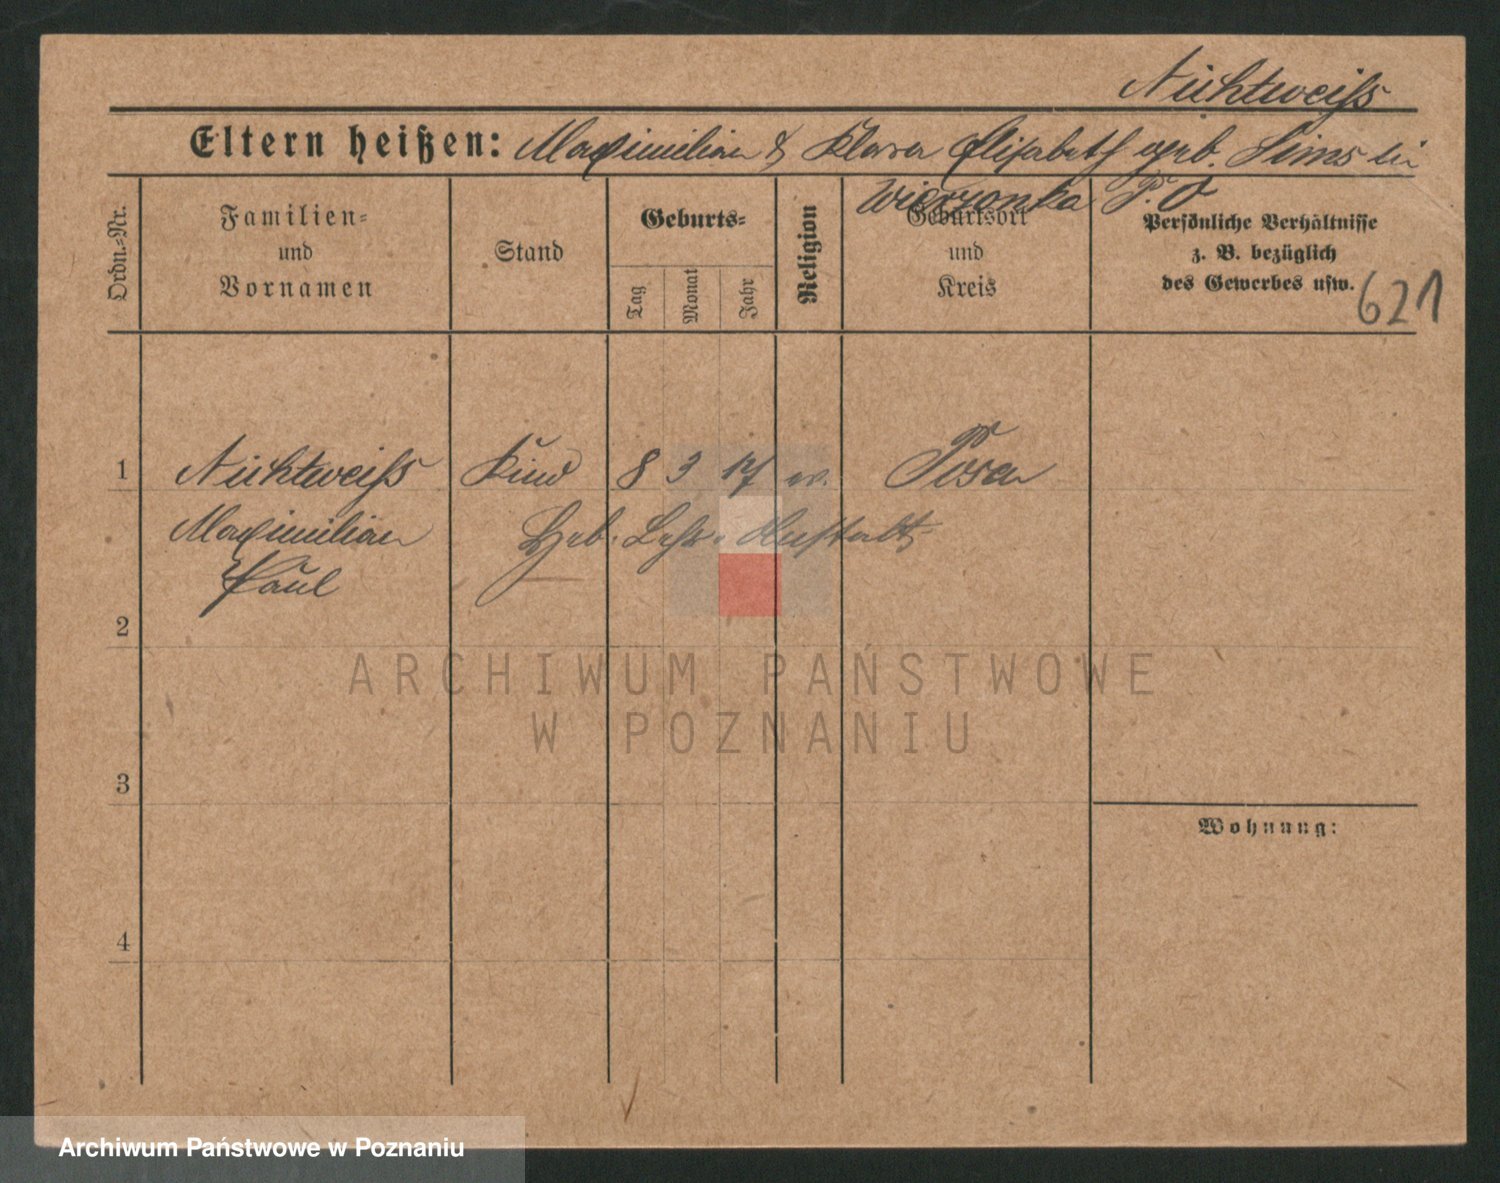 Nichtweiss
Eltern heißen: Maximilian & Klara Elisabeth geb. Sims in
Wierzonka P. O
Ordn.=Nr.
Familien=
und
Vornamen
Stand
Geburts=
Tag
Monat
Jahr
Religion
Geburtsort
und
Kreis
Persönliche Verhältnisse
z. B. bezüglich
des Gewerbes usw.
621
1 Nichtweiss Kind 8 3 17 ev. Posen
Maximilian Heb. Lehr-Anstalt
Paul
2
ARCHIWUM PAŃSTWOWE
W POZNANIU
3
Wohnung:
4
Archiwum Państwowe w Poznaniu